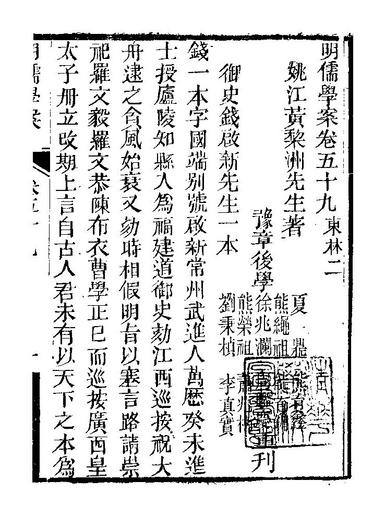 明儒學案卷五十九 東林二
姚江黃棃洲先生著
豫章後學
夏鼎
熊繩祖
徐兆瀾
熊榮祖
劉秉楨 李真實
刊
御史錢啟新先生一本
錢一本字國端別號啟新常州武進人萬歷癸未進
士授廬陵知縣入為福建道御史劾江西巡按祝大
舟逮之貪風始衰又劾時相假明旨以塞言路請崇
祀羅文毅羅文恭陳布衣曹學正已而巡按廣西皇
太子册立改期上言自古人君未有以天下之本為